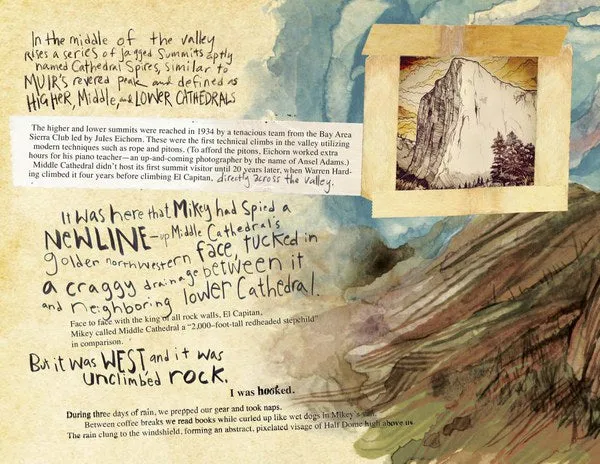 In the middle of the valley
rises a series of jagged summits aptly
named Cathedral Spires, similar to
MUIR'S revered peak and defined as
HIGHER, Middle and LOWER CATHEDRALS
The higher and lower summits were reached in 1934 by a tenacious team from the Bay Area
Sierra Club led by Jules Eichorn. These were the first technical climbs in the valley utilizing
modern techniques such as rope and pitons. (To afford the pitons, Eichorn worked extra
hours for his piano teacher—an up-and-coming photographer by the name of Ansel Adams.)
Middle Cathedral didn't host its first summit visitor until 20 years later, when Warren Hard-
ing climbed it four years before climbing El Capitan, directly across the valley.
It was here that Mikey had spied a
NEW LINE—up Middle Cathedral's
golden northwestern face, tucked in
a craggy drainage between it
and neighboring lower Cathedral.
Face to face with the king of all rock walls, El Capitan,
Mikey called Middle Cathedral a “2,000-foot-tall redheaded stepchild”
in comparison.
But it was WEST, and it was
unclimbed rock.
I was hooked.
During three days of rain, we prepped our gear and took naps.
Between coffee breaks we read books while curled up like wet dogs in Mikey's van.
The rain clung to the windshield, forming an abstract, pixelated visage of Half Dome high above us